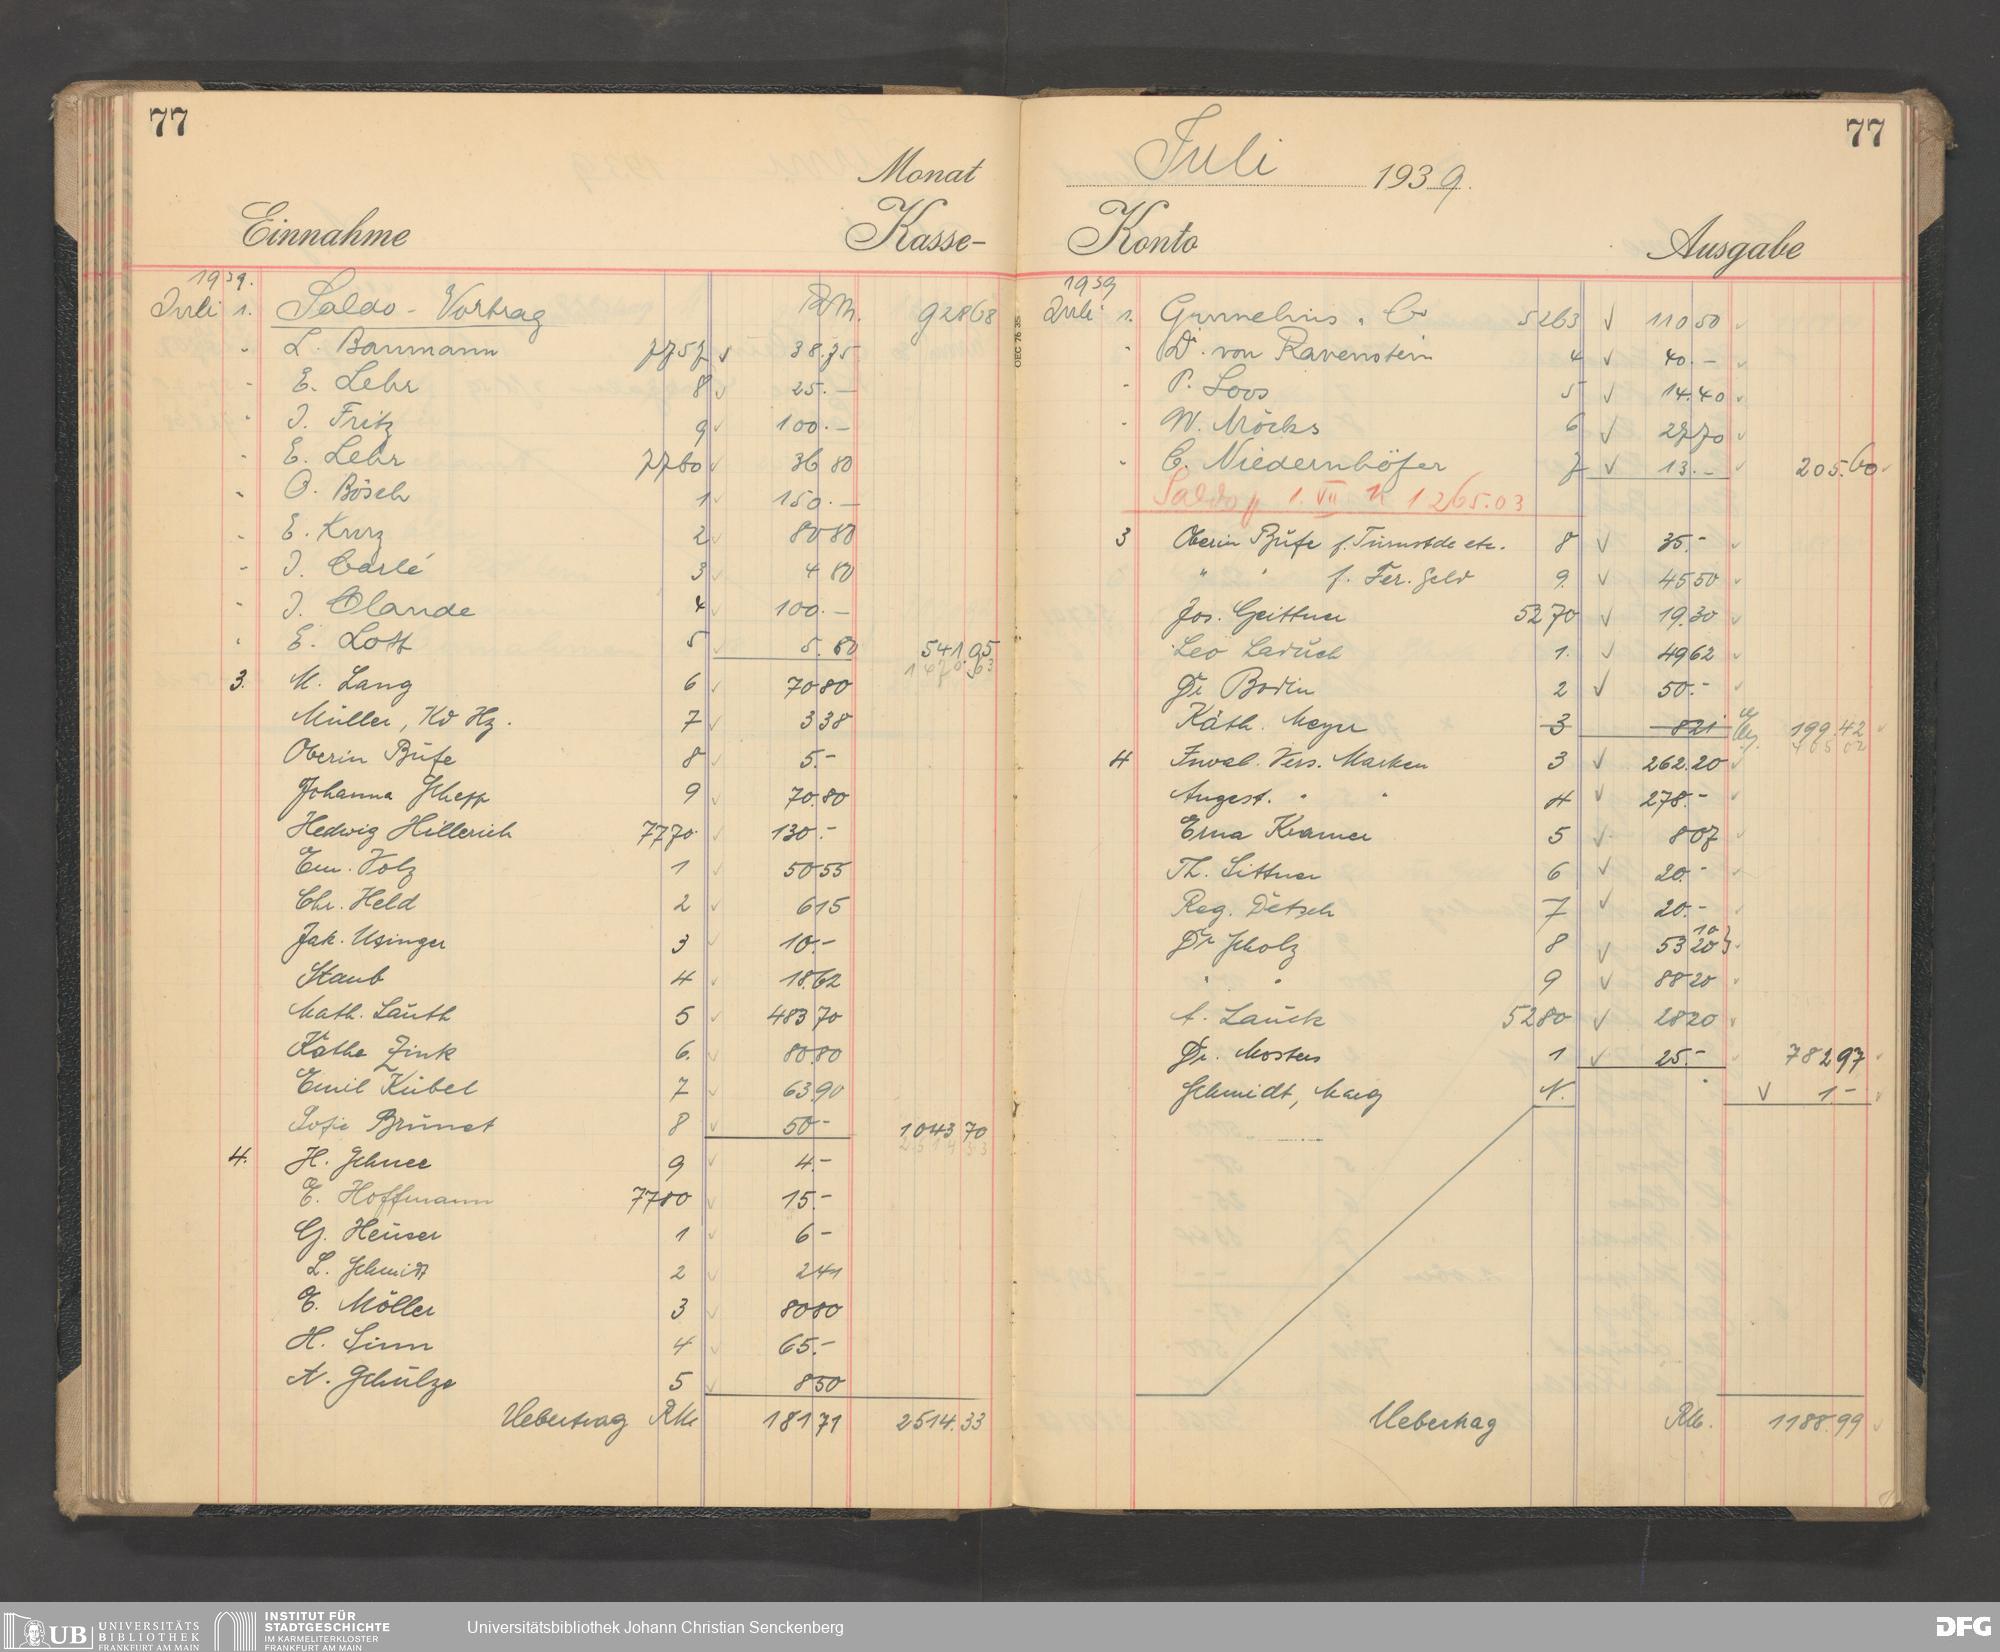 77
Monat
Einnahme Kasse-
1939.
Juli 1. Saldo-Vortrag RM. 928 68
" L. Baumann 7757 38.75
" E. Lehr 8 25.—
" J. Fritz 9 100.—
" E. Lehr 7760 36 80
" O. Bösch 1 150.—
" E. Kurz 2 80 80
" J. Carlé 3 4 80
" J. Olande 4 100.—
" E. Lott 5 5.80 541.95
1470.63
3. M. Lang 6 70 80
Müller, Kd Hz. 7 3 38
Oberin Büfe 8 5.-
Johanna Schepp 9 70.80
Hedwig Hillerich 7770 130.-
Em. Volz 1 50 55
Chr. Held 2 6 15
Jak. Usinger 3 10.-
Staub 4 18.62
Math. Lauth 5 483 70
Käthe Zink 6. 80.80
Emil Kübel 7 63.90
Sofie Brunst 8 50- 1043 70
2514 33
4. H. Schnee 9 4.-
E. Hoffmann 7780 15.-
G. Heuser 1 6-
L. Schmidt 2 2 41
E. Möller 3 80 80
H. Sinn 4 65.-
A. Schulze 5 8 50
Uebertrag RM 181 71 2514.33
77
Juli 1939.
Konto Ausgabe
1939
Juli 1. & Co 5263 110 50
" Dr. von Ravenstein 4 40.-
" P. Loos 5 14.40
" W. Möcks 6 27 70
" C. Niedernhöfer 7 13.- 205.60
Saldo p 1. VII 1265.03
3 Oberin Büfe f. Turnstde etc. 8 35.-
" " f. Fer. Geld 9. 45 50
Jos. Geittner 5270 19.30
Leo Laduch 1. 49 62
Dr Bodin 2 50.-
Käth. Meyer 3 8 21 199.42
405 02
4 Inval. Vers. Marken 3 262.20
Angest. " " 4 278.-
Erna Kramer 5 8 07
Th. Sittner 6 20.-
Reg. Detsch 7 20.-
10
Dr Scholz 8 53 20
" " 9 88 20
A. Lauck 5280 28 20
Dr. Mosters 1 25.- 782 97
Schmidt, Marg N. 1.-
Uebertrag RM. 1188.99
OEC 76 35
UB UNIVERSITÄTS
BIBLIOTHEK
FRANKFURT AM MAIN
INSTITUT FÜR
STADTGESCHICHTE
IM KARMELITERKLOSTER
FRANKFURT AM MAIN
Universitätsbibliothek Johann Christian Senckenberg
DFG